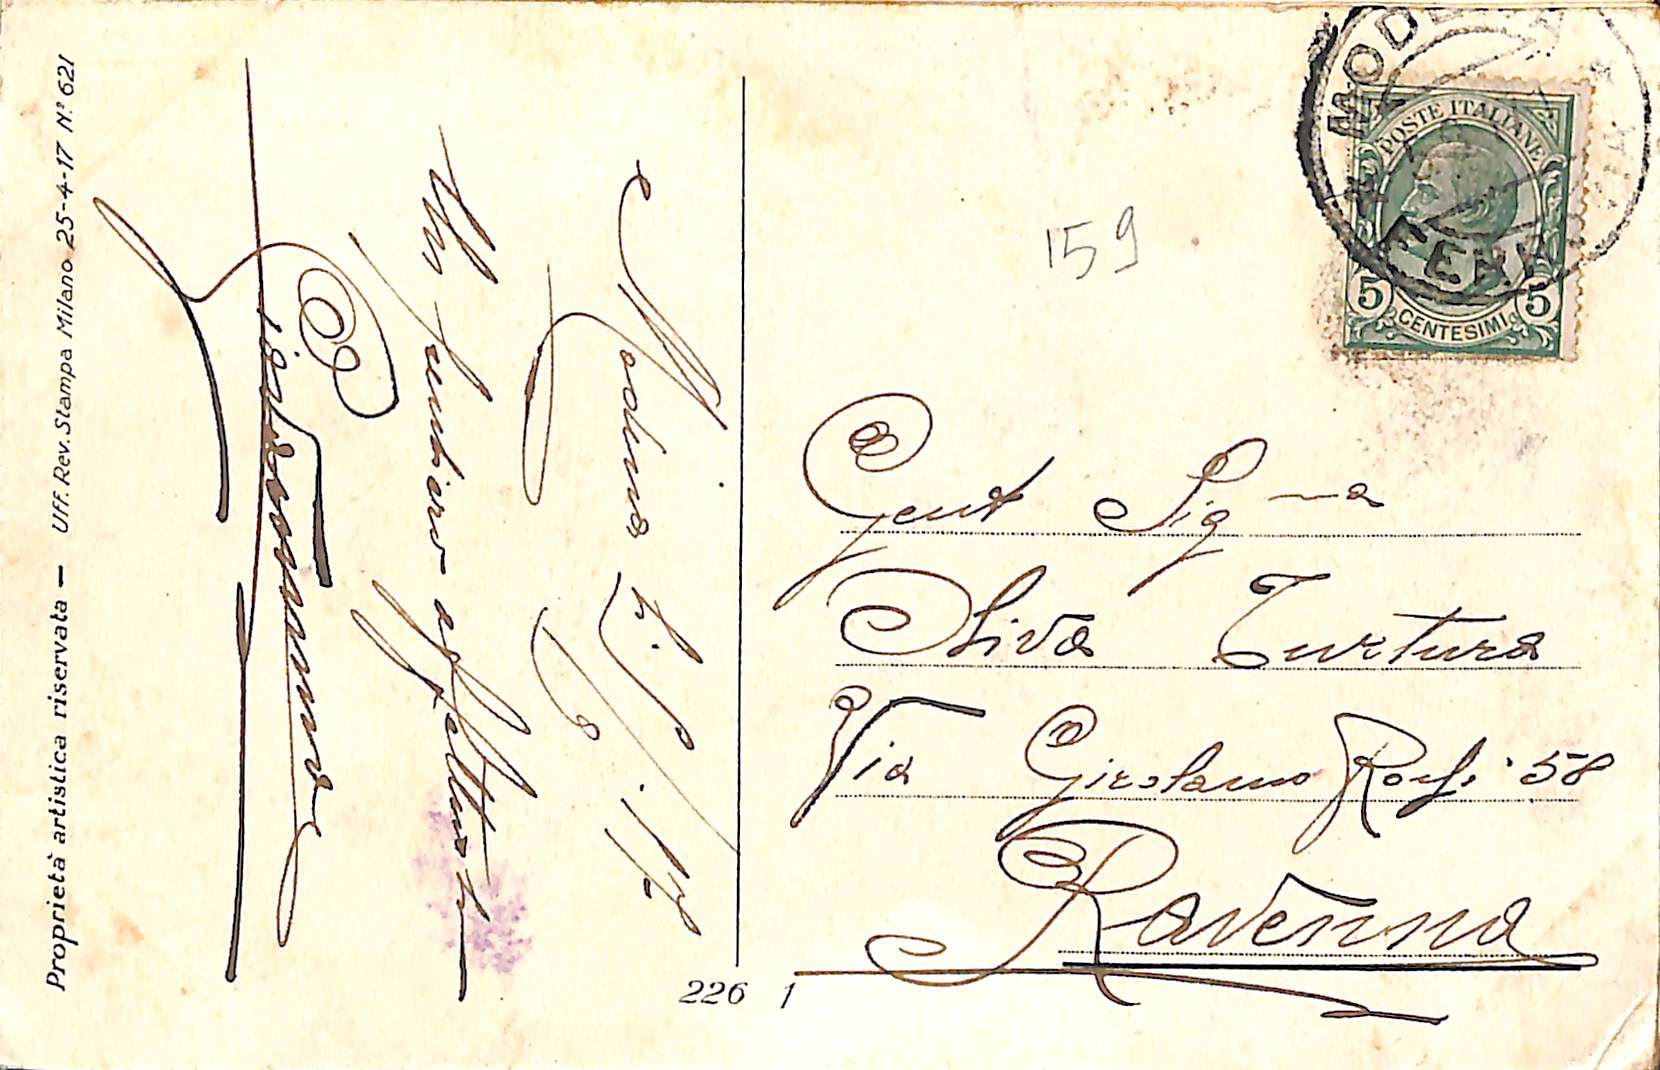 Proprietà artistica riservata — Uff. Rev. Stampa Milano 25-4-17 N.° 621
Modena
Un pensiero affettuoso
226 1
159
MODENA
FERR
POSTE ITALIANE
5 CENTESIMI 5
Gent Sig na
Oliva Turtura
Via Girolamo Rossi 58
Ravenna